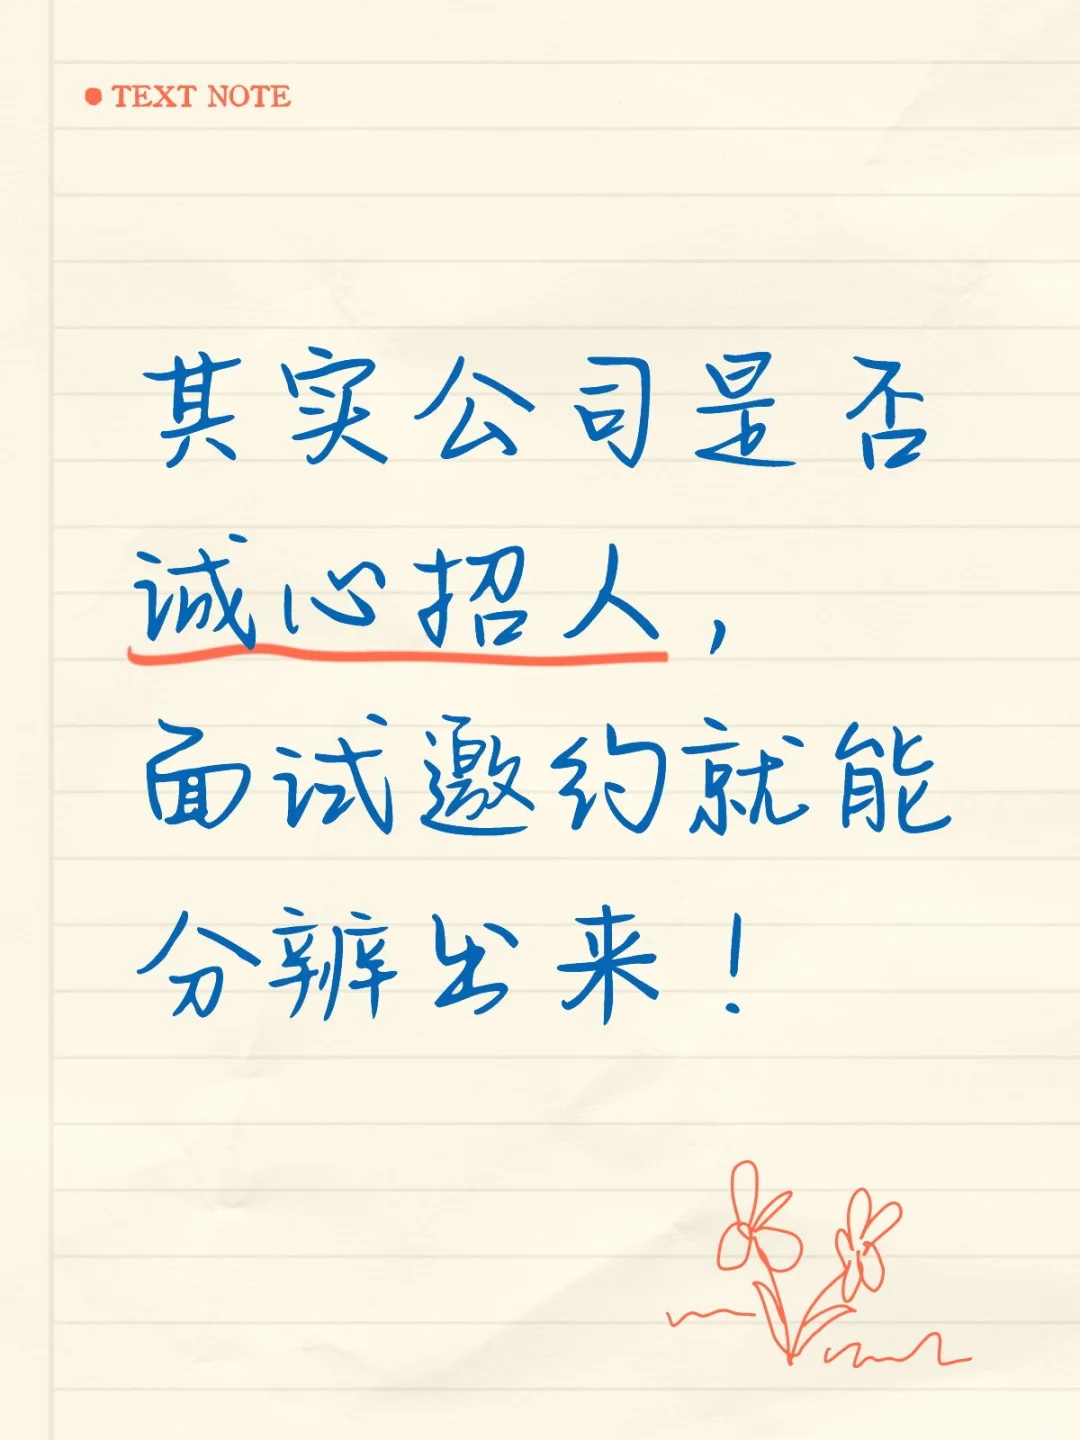 TEXT NOTE
其实公司是否
诚心招人，
面试邀约就能
分辨出来！